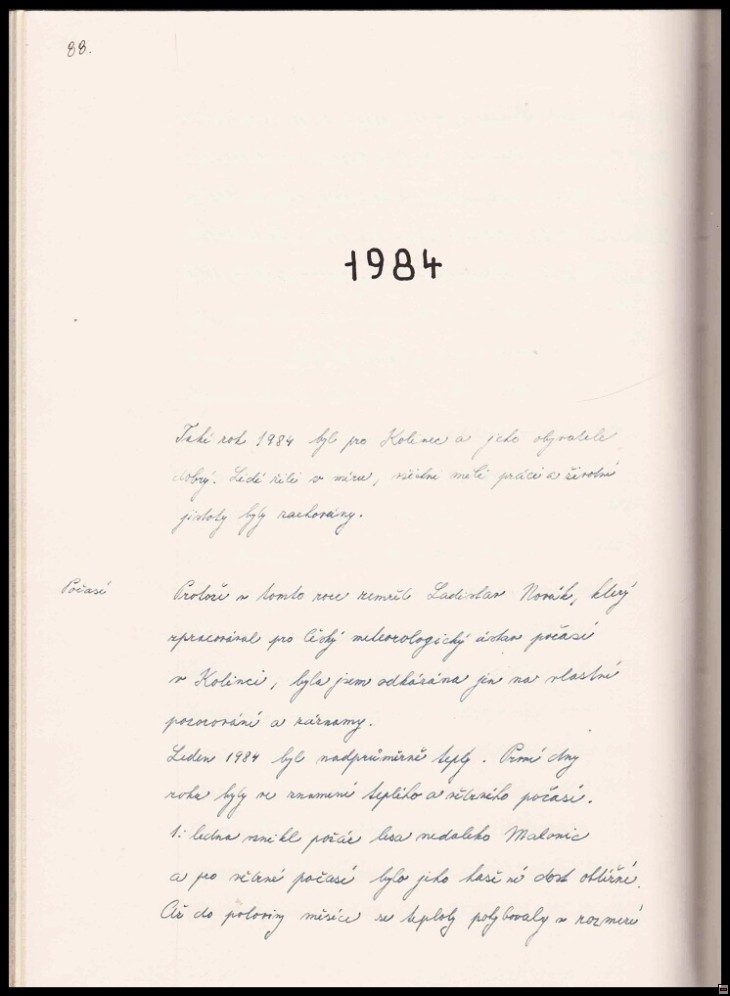 88.
1984
Také rok 1984 byl pro Kolinec a jeho obyvatele
dobrý. Lidé žili v míru, všichni měli práci a životní
jistoty byly zachovány.
Počasí
Protože v tomto roce zemřel Ladislav Novák, který
zpracovával pro Český meteorologický ústav počasí
v Kolinci, byla jsem odkázána jen na vlastní
pozorování a záznamy.
Leden 1984 byl nadprůměrně teplý. První dny
roku byly ve znamení teplého a větrného počasí.
1. ledna vznikl požár lesa nedaleko Malonic
a pro větrné počasí bylo jeho hašení dost obtížné.
Až do poloviny měsíce se teploty pohybovaly v rozmezí